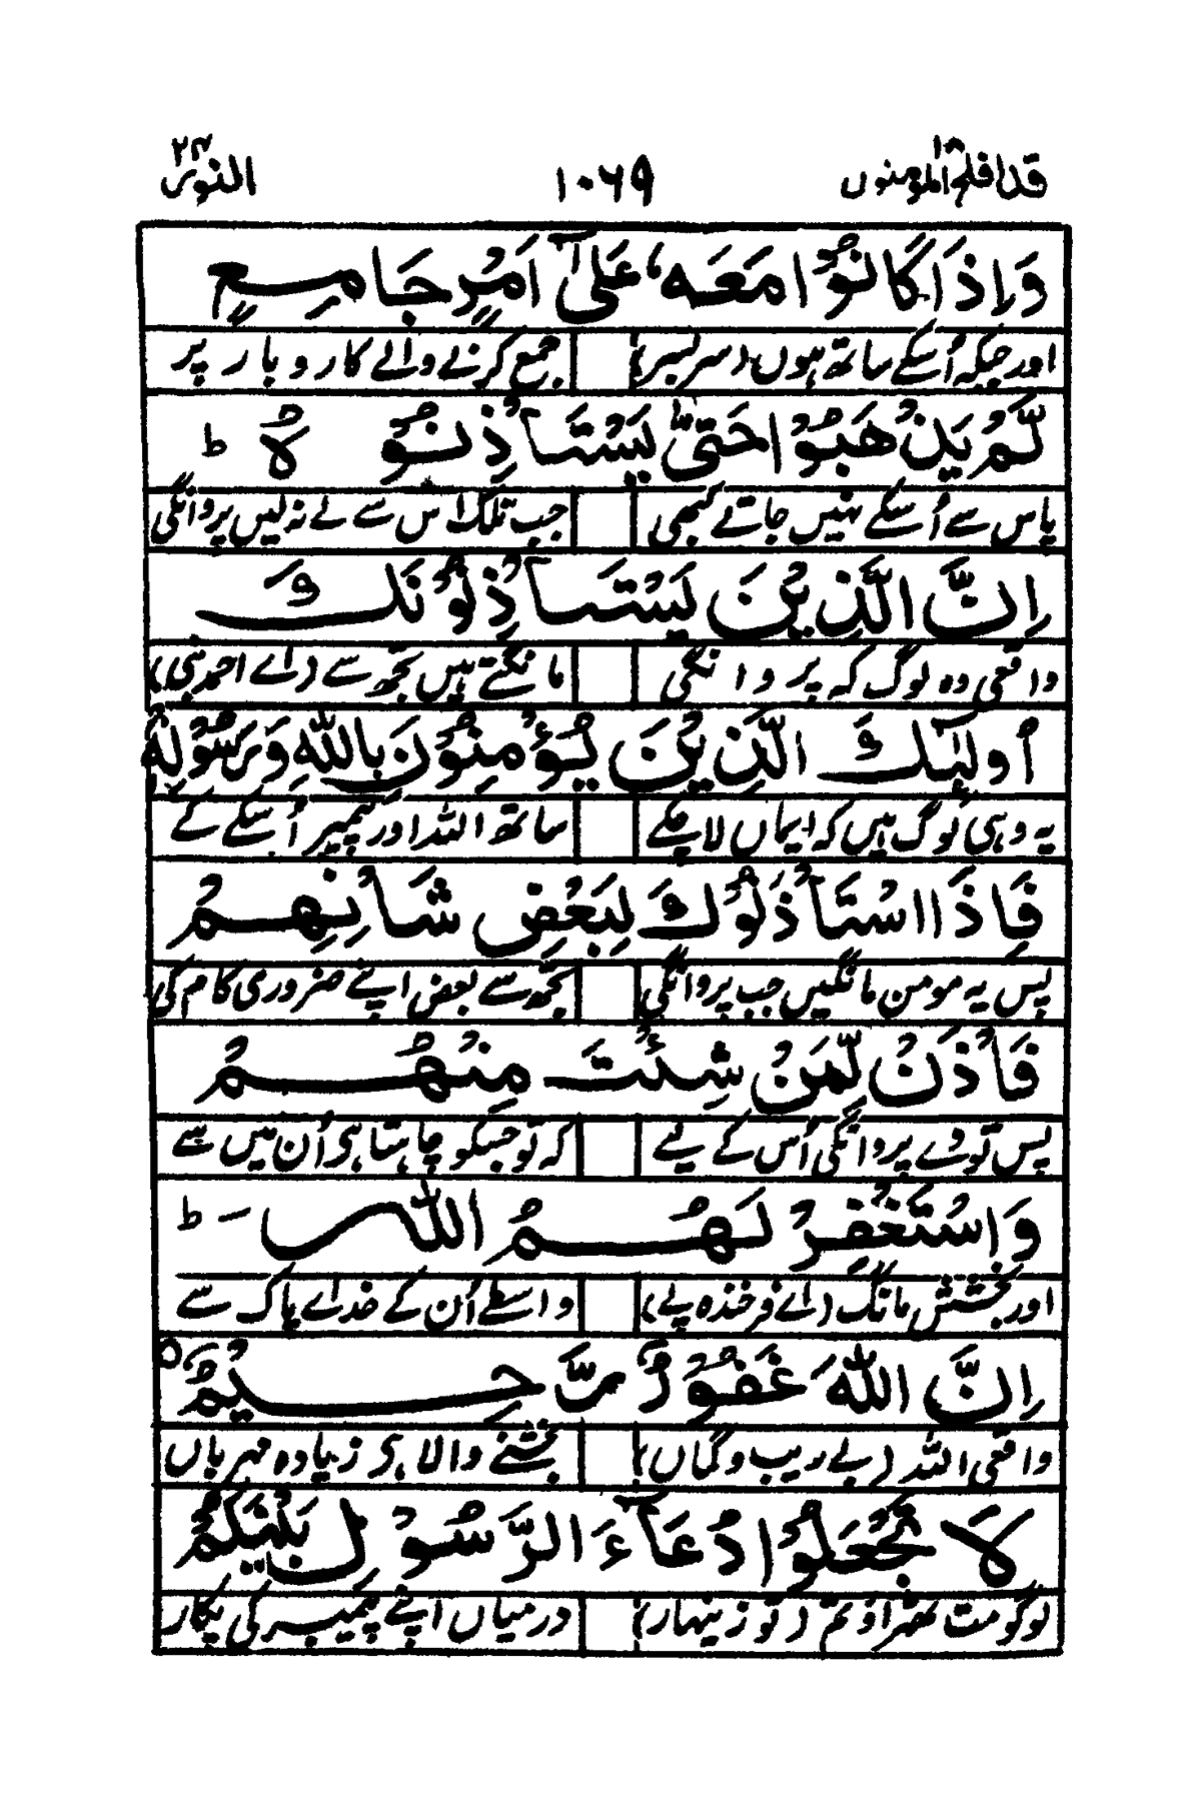 قد افلح المؤمنون ۱۸ ۱۰۶۹ النور ۲۴
وَاِذَا كَانُوْا مَعَهٗ عَلٰٓى اَمْرٍ جَامِعٍ
اور جبکہ اُسکے ساتھ ہوں (سربسر) جمع کرنے والے کار و بار پر
لَّمْ يَذْهَبُوْا حَتّٰى يَسْتَاْذِنُوْهُ ط
پاس سے اُسکے نہیں جاتے کبھی جب تلک اس سے لے نہ لیں پروانگی
اِنَّ الَّذِيْنَ يَسْتَاْذِنُوْنَكَ
واقعی وہ لوگ کہ پر وانگی مانگتے ہیں تجھ سے (اے احمد نبی)
اُولٰٓئِكَ الَّذِيْنَ يُؤْمِنُوْنَ بِاللّٰهِ وَرَسُوْلِهٖ
یہ وہی لوگ ہیں کہ ایماں لا چکے ساتھ اللہ اور پیمبر اُسکے کے
فَاِذَا اسْتَاْذَنُوْكَ لِبَعْضِ شَاْنِهِمْ
پس یہ مومن مانگیں جب پروانگی تجھ سے بعض اپنے ضروری کام کی
فَاْذَنْ لِّمَنْ شِئْتَ مِنْهُمْ
پس تو دے پروانگی اُس کے لیے کہ تو جسکو چاہتا ہی اُن میں سے
وَاسْتَغْفِرْ لَهُمُ اللّٰهَ ط
اور بخشش مانگ (اے فرخندہ پے) واسطے اُن کے خدائے پاک سے
اِنَّ اللّٰهَ غَفُوْرٌ رَّحِيْمٌ ○
واقعی اللہ (بے ریب و گماں) بخشنے والا ہی زیادہ مہرباں
لَا تَجْعَلُوْا دُعَآءَ الرَّسُوْلِ بَيْنَكُمْ
لوگو مت ٹھہراؤ تم (تو زینہار) درمیاں اپنے پیمبر کی پکار